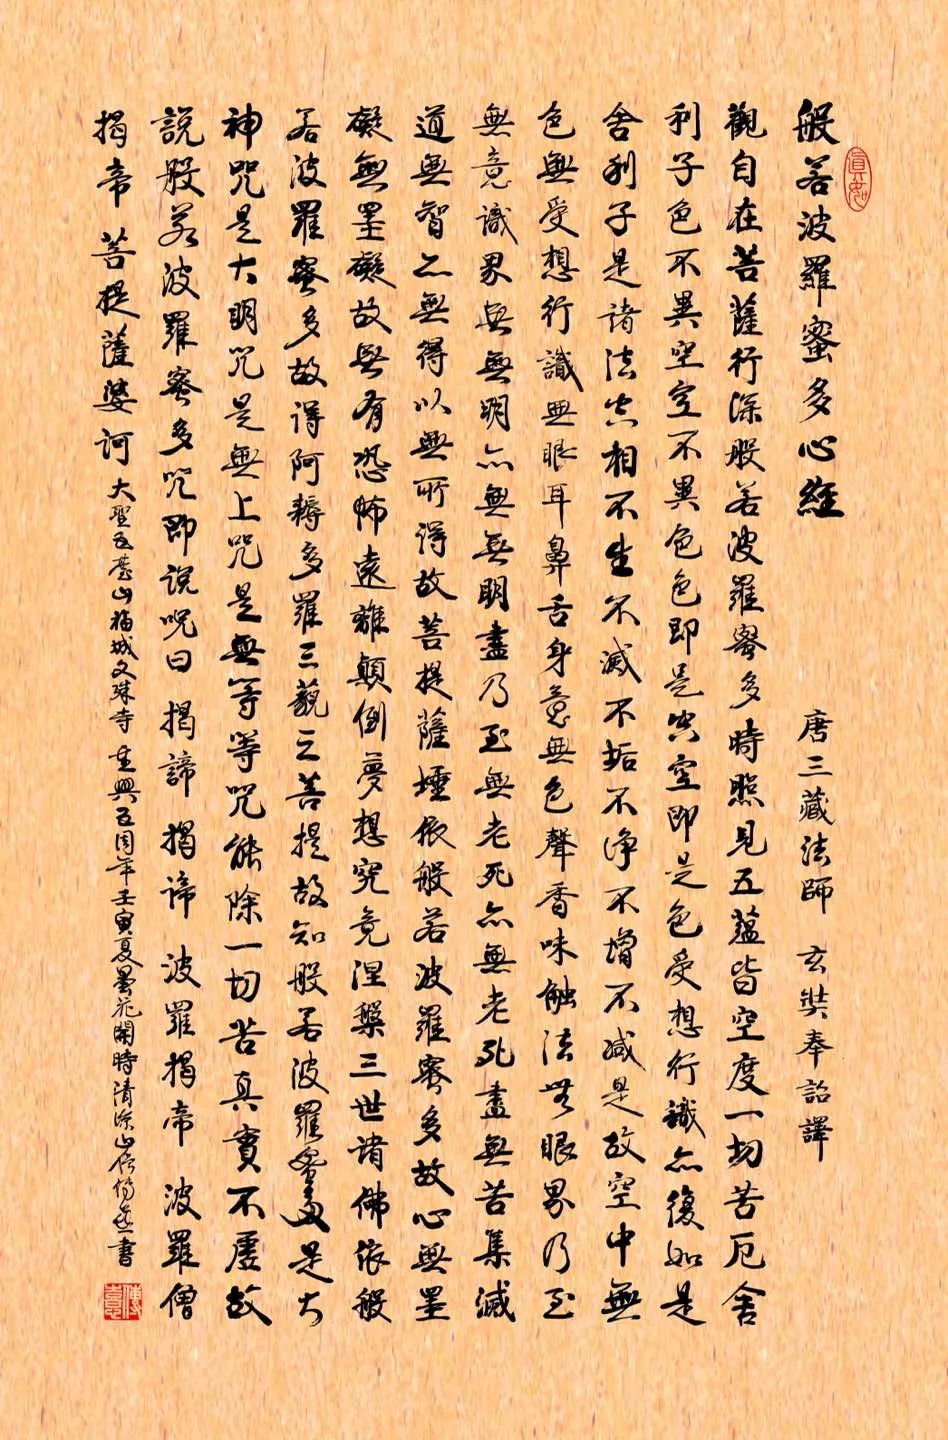 眞如
般若波羅蜜多心經 唐三藏法師 玄奘奉詔譯
觀自在菩薩行深般若波羅蜜多時照見五蘊皆空度一切苦厄舍
利子色不異空空不異色色即是空空即是色受想行識亦復如是
舍利子是諸法空相不生不滅不垢不淨不增不減是故空中無
色無受想行識無眼耳鼻舌身意無色聲香味触法無眼界乃至
無意識界無無明亦無無明盡乃至無老死亦無老死盡無苦集滅
道無智亦無得以無所得故菩提薩埵依般若波羅蜜多故心無罣
礙無罣礙故無有恐怖遠離顛倒夢想究竟涅槃三世諸佛依般
若波羅蜜多故得阿耨多羅三藐三菩提故知般若波羅蜜多是大
神咒是大明咒是無上咒是無等等咒能除一切苦真實不虛故
說般若波羅蜜多咒即說呪曰 揭諦 揭諦 波羅揭帝 波羅僧
揭帝 菩提薩婆訶 大聖五臺山福城文殊寺重興五周年壬寅夏曇花開時清涼山居 書